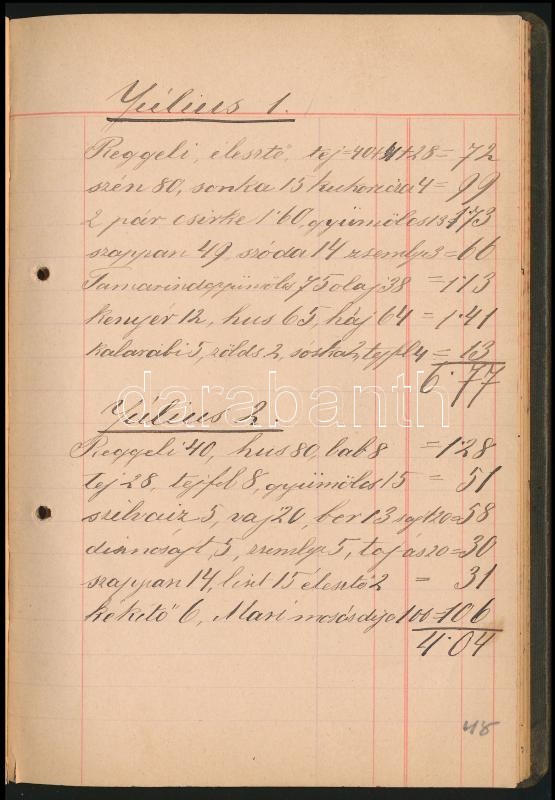 Július 1.
Reggeli, élesztő, tej=40+4+28= 72
szén 80, sonka 15 kukoricza 4= 99
2 pár csirke 1·60, gyümölcs 13=1·73
szappan 49, szóda 14 zsemlye 3= 66
Tamarind gyümölcs 75 olaj 38 = 1·13
kenyér 12, hus 65, háj 64 = 1·41
kalarábi 5, zölds 2, sóska 2, tejfl 4 = 13
6·77
darabanth
Július 2.
Reggeli 40, hus 80, bab 8 = 1·28
tej 28, tejfel 8, gyümölcs 15 = 51
szilvaiz 5, vaj 20, bor 13 sajt 20=58
disznósajt 5, zsemlye 5, tojás 20=30
szappan 14, liszt 15 élesztő 2 = 31
kékitő 6, Mari mosásdija 100=106
4·04
48